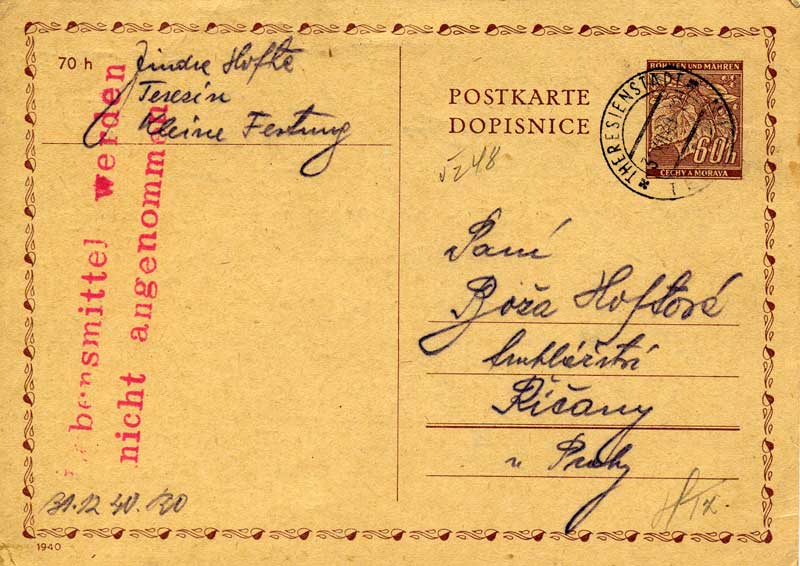 70 h
Jindra Hofta
Terezín
Kleine Festung
Lebensmittel werden
nicht angenommen
POSTKARTE
DOPISNICE
BÖHMEN UND MÄHREN
60h
ČECHY A MORAVA
THERESIENSTADT
Paní
Boža Hoftová
truhlářství
Říčany
u Prahy
1940